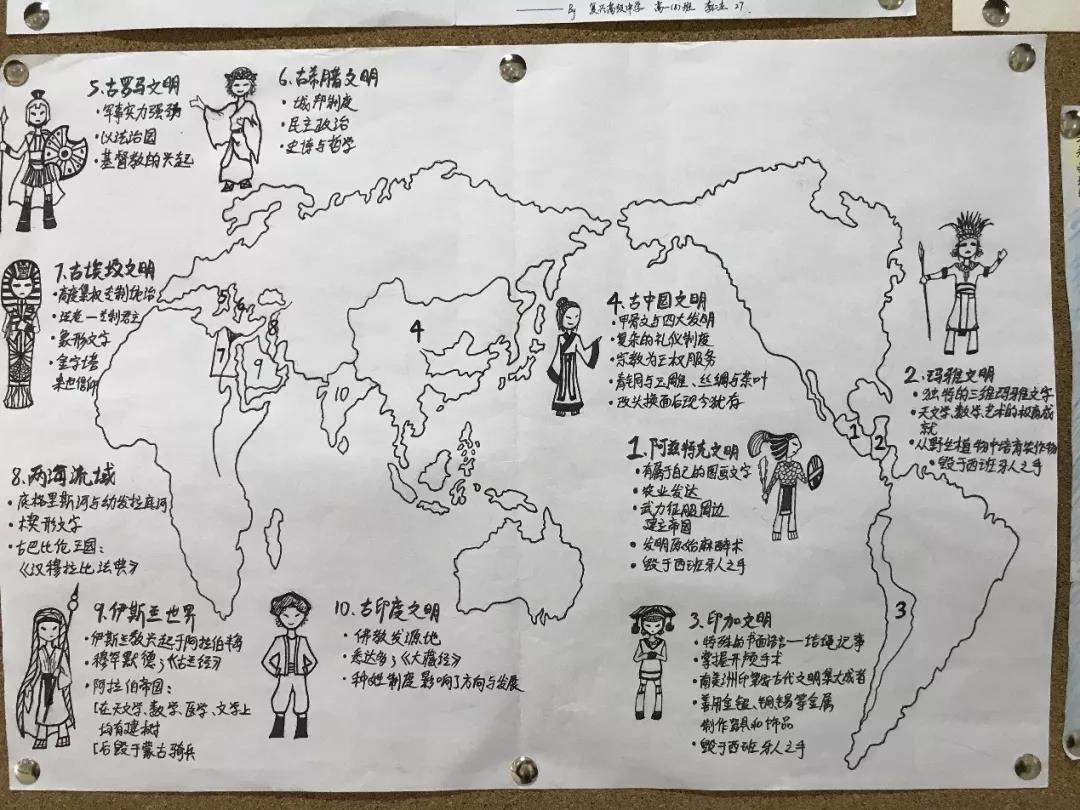 By 复兴高级中学 高一(8)班
5.古罗马文明
·军事实力强劲
·以法治国
·基督教的兴起
6.古希腊文明
·城邦制度
·民主政治
·史诗与哲学
7.古埃及文明
·高度集权专制统治
·法老—专制君主
·象形文字
·金字塔
来世信仰
8.两海流域
·底格里斯河与幼发拉底河
·楔形文字
·古巴比伦王国：
《汉穆拉比法典》
9.伊斯兰世界
·伊斯兰教兴起于阿拉伯半岛
·穆罕默德；《古兰经》
·阿拉伯帝国：
[在天文学、数学、医学、文学上
均有建树
[后毁于蒙古骑兵
10.古印度文明
·佛教发源地
·悉达多；《大藏经》
·种姓制度影响了方向与发展
4.古中国文明
·甲骨文与四大发明
·复杂的礼仪制度
·宗教为王权服务
·青铜与玉雕、丝绸与茶叶
·改头换面后现今犹存
1.阿兹特克文明
·有属于自己的图画文字
·农业发达
·武力征服周边
建立帝国
·发明原始麻醉术
·毁于西班牙人之手
2.玛雅文明
·独特的三维玛雅文字
·天文学、数学、艺术的极高成
就
·从野生植物中培育农作物
·毁于西班牙人之手
3.印加文明
·特殊的书面语言—结绳记事
·掌握开颅手术
·南美洲印第安古代文明集大成者
·善用金银、铜锡等金属
制作器具和饰品
·毁于西班牙人之手
5
6
7
8
9
10
4
1
2
3